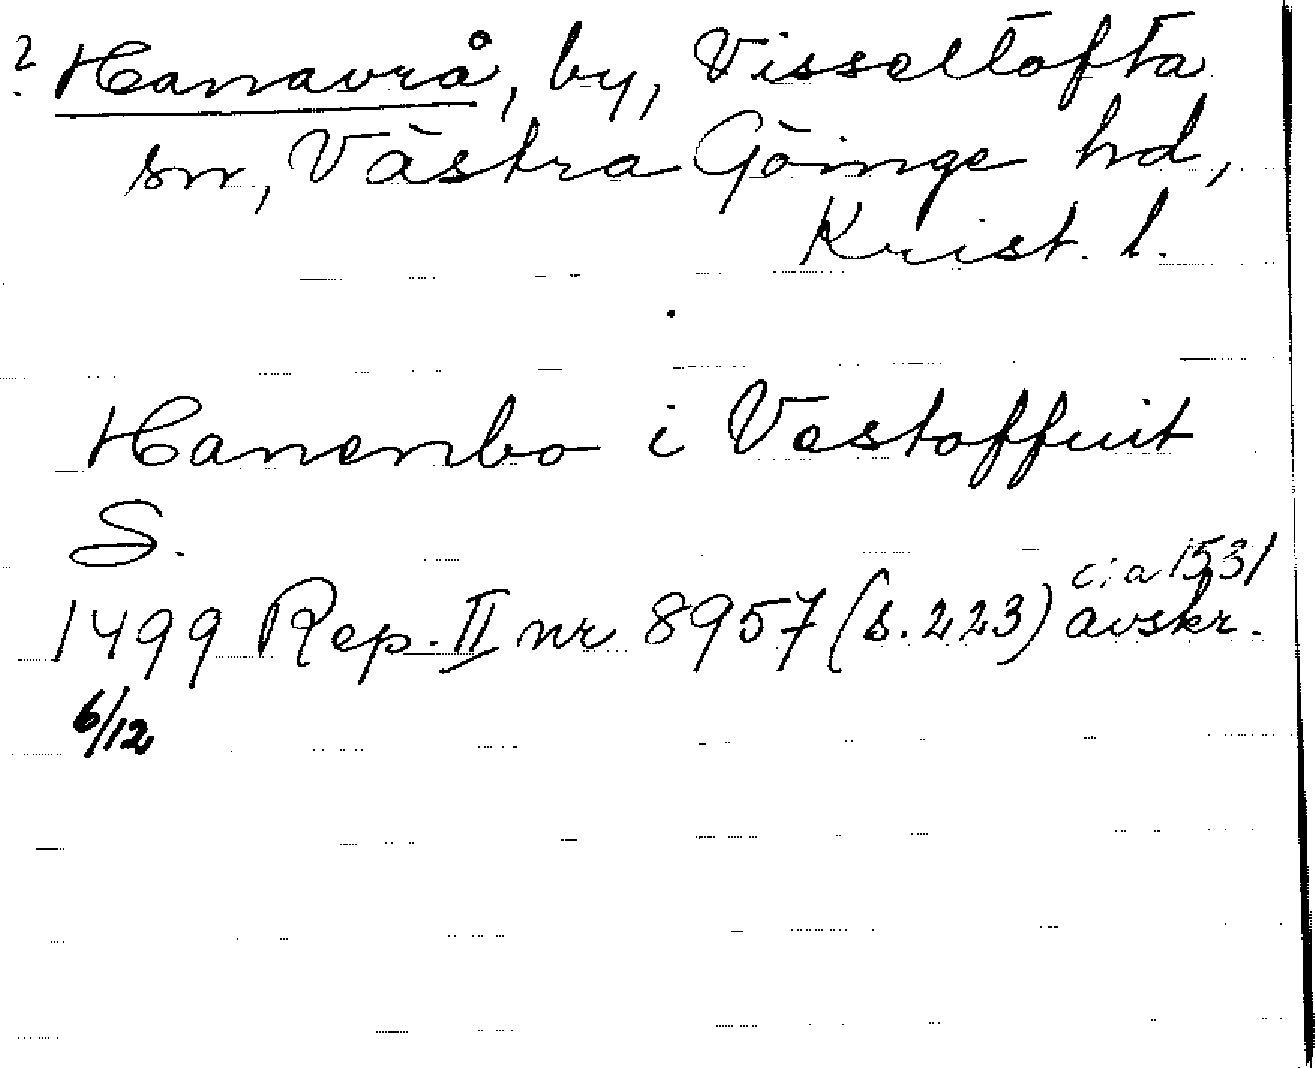 ? Hanavrå, by, Visseltofta
sn, Västra Göinge hd,
Krist. l.
Hanenbo i Vestoffuit
S.
1499 Rep. II nr 8957 (s. 223) avskr.
c:a 1531
6/12